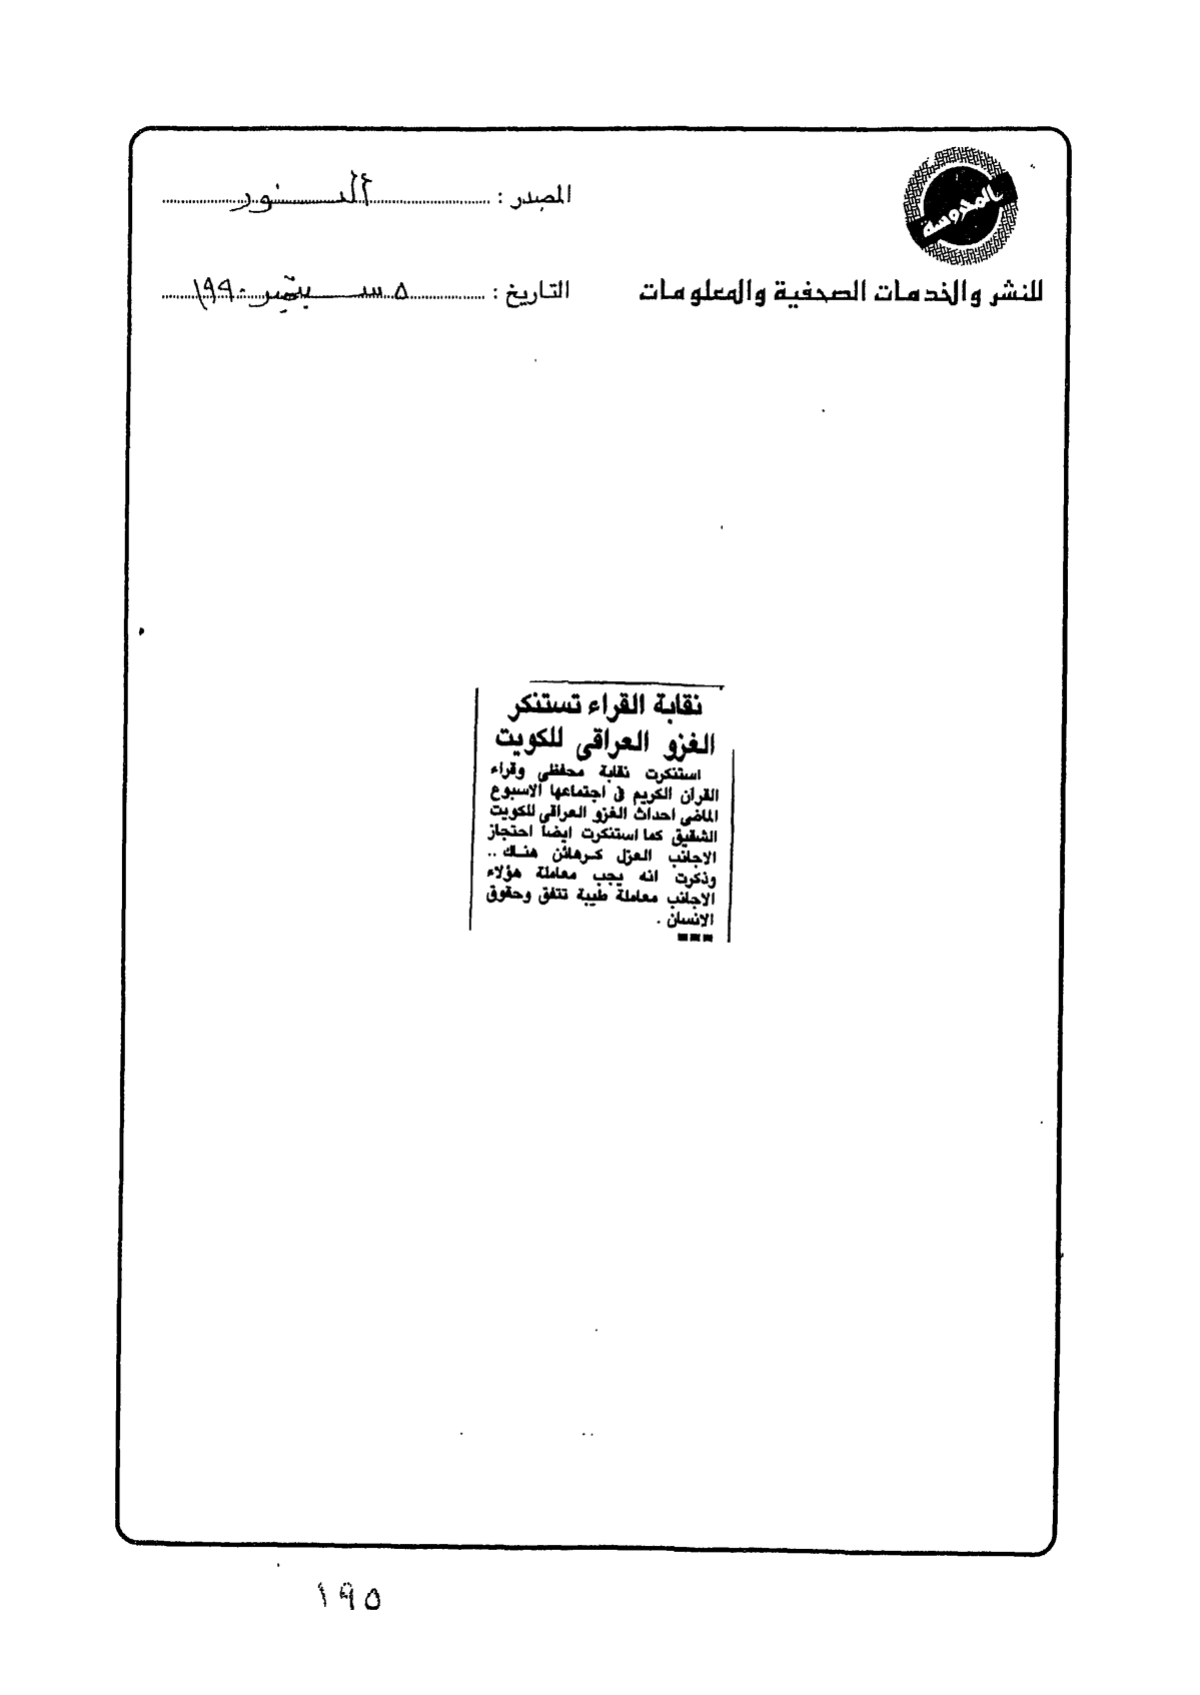 المصدر : النور
للنشر والخدمات الصحفية والمعلومات
التاريخ : ٥ سبتمبر ١٩٩٠
نقابة القراء تستنكر
الغزو العراقى للكويت
استنكرت نقابة محفظى وقراء
القرآن الكريم فى اجتماعها الاسبوع
الماضى احداث الغزو العراقى للكويت
الشقيق كما استنكرت ايضا احتجاز
الاجانب العزل كرهائن هناك ..
وذكرت انه يجب معاملة هؤلاء
الاجانب معاملة طيبة تتفق وحقوق
الانسان .
١٩٥